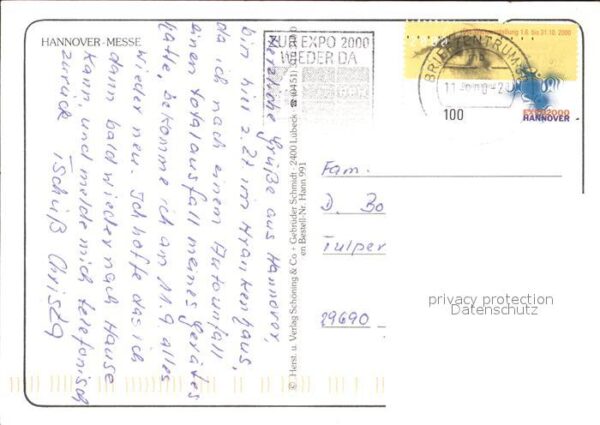 HANNOVER-MESSE
Herzliche Grüße aus Hannover,
bin hier z.Zt im Krankenhaus,
da ich nach einem Autounfall
einen totalausfall meines Gerätes
hatte, bekomme ich am 11.9. alles
wieder neu. Ich hoffe das ich
dann bald wieder nach Hause
kann, und melde mich telefonisch
zurück Tschüß Christa
© Herst. u. Verlag Schöning & Co + Gebrüder Schmidt, 2400 Lübeck ☎ (0451)
en Bestell-Nr. Hann 991
ZUR EXPO 2000
WIEDER DA
BRIEFZENTRUM
stellung 1.6. bis 31.10. 2000
EXPO2000
HANNOVER
100
Fam.
D. Bo
Tulper
29690
privacy protection
Datenschutz